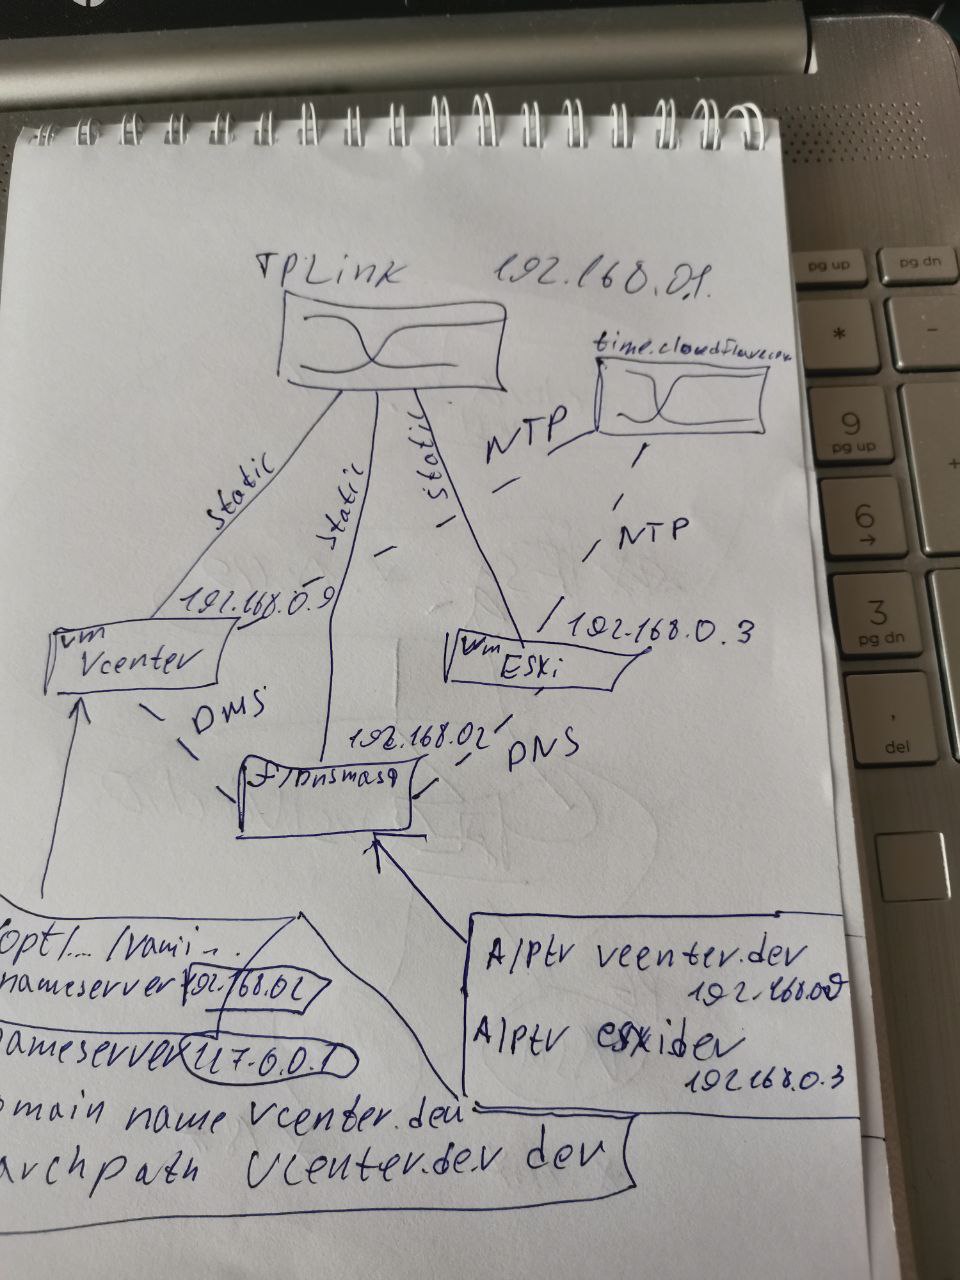 TPLink 192.168.0.1.
time.cloudflare.com
NTP
Static
Static
Static
NTP
192.168.0.9
192.168.0.3
vm
Vcenter
vm
ESXi
DNS
192.168.02
DNS
/Dnsmasq
/opt/... /vami-..
nameserver 192.168.02
nameserver 127.0.0.1
omain name vcenter.dev
archpath vcenter.dev dev
A/Ptr vcenter.dev
192.168.0.9
A/Ptr esxi.dev
192168.0.3
pg up
pg dn
*
-
9
pg up
+
6
→
3
pg dn
,
del